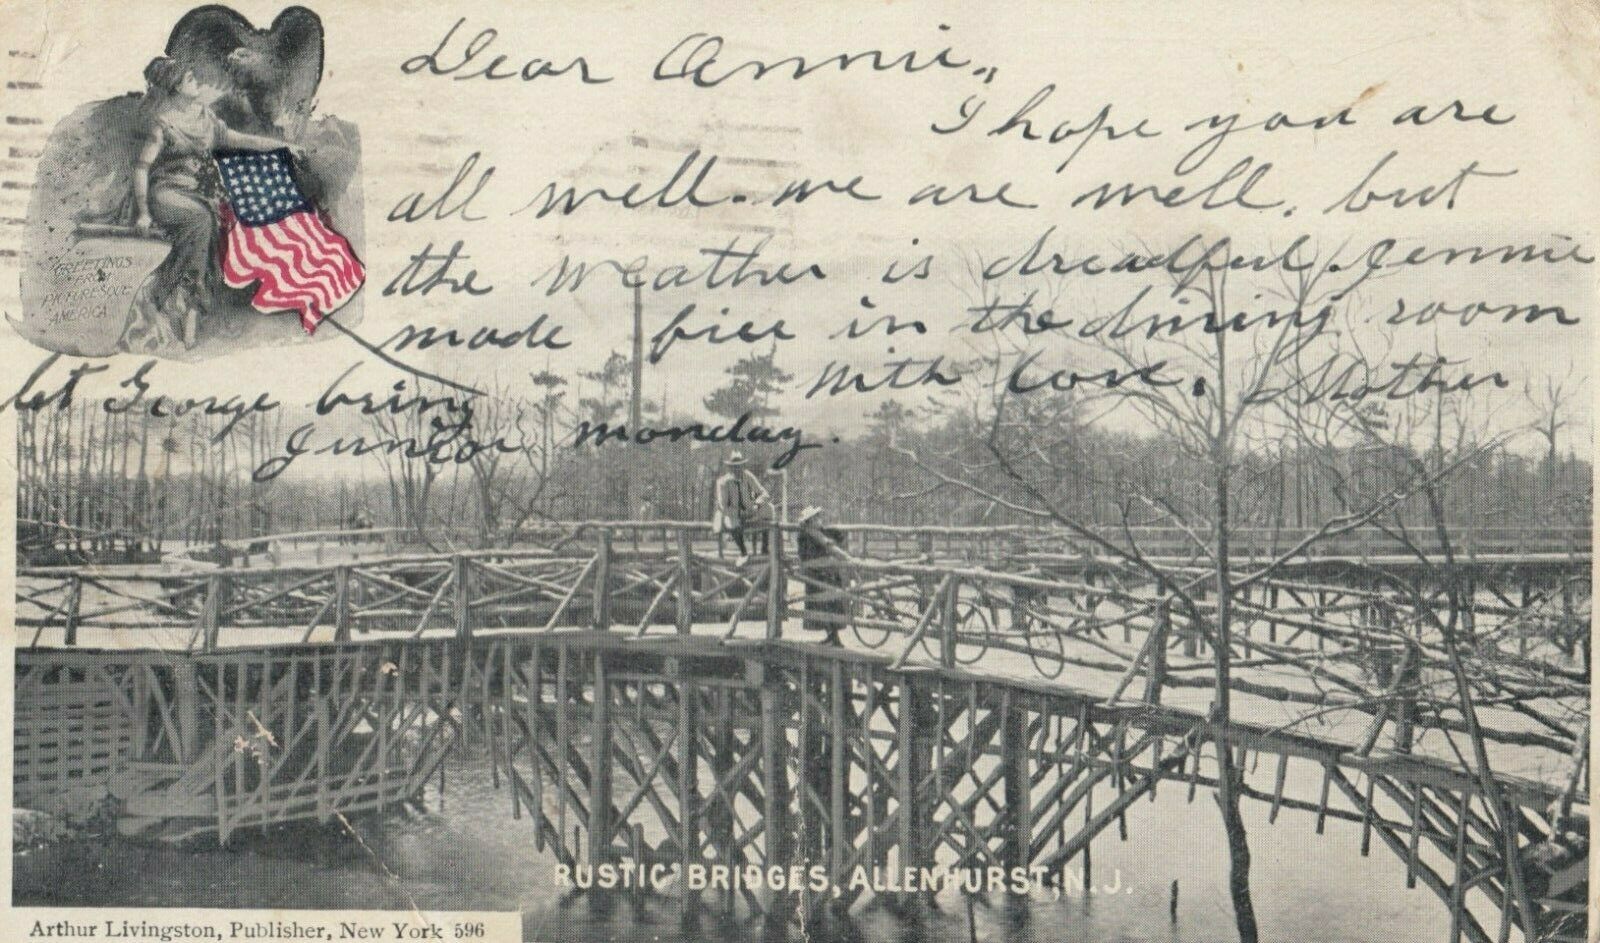 Dear Annie,,
I hope you are
all well. we are well. but
the weather is dreadful. Jennie
made fire in the dining room
with love. Mother
let George bring
Junior monday.
GREETINGS
FROM
PICTURESQUE
AMERICA
RUSTIC BRIDGES, ALLENHURST, N.J.
Arthur Livingston, Publisher, New York 596